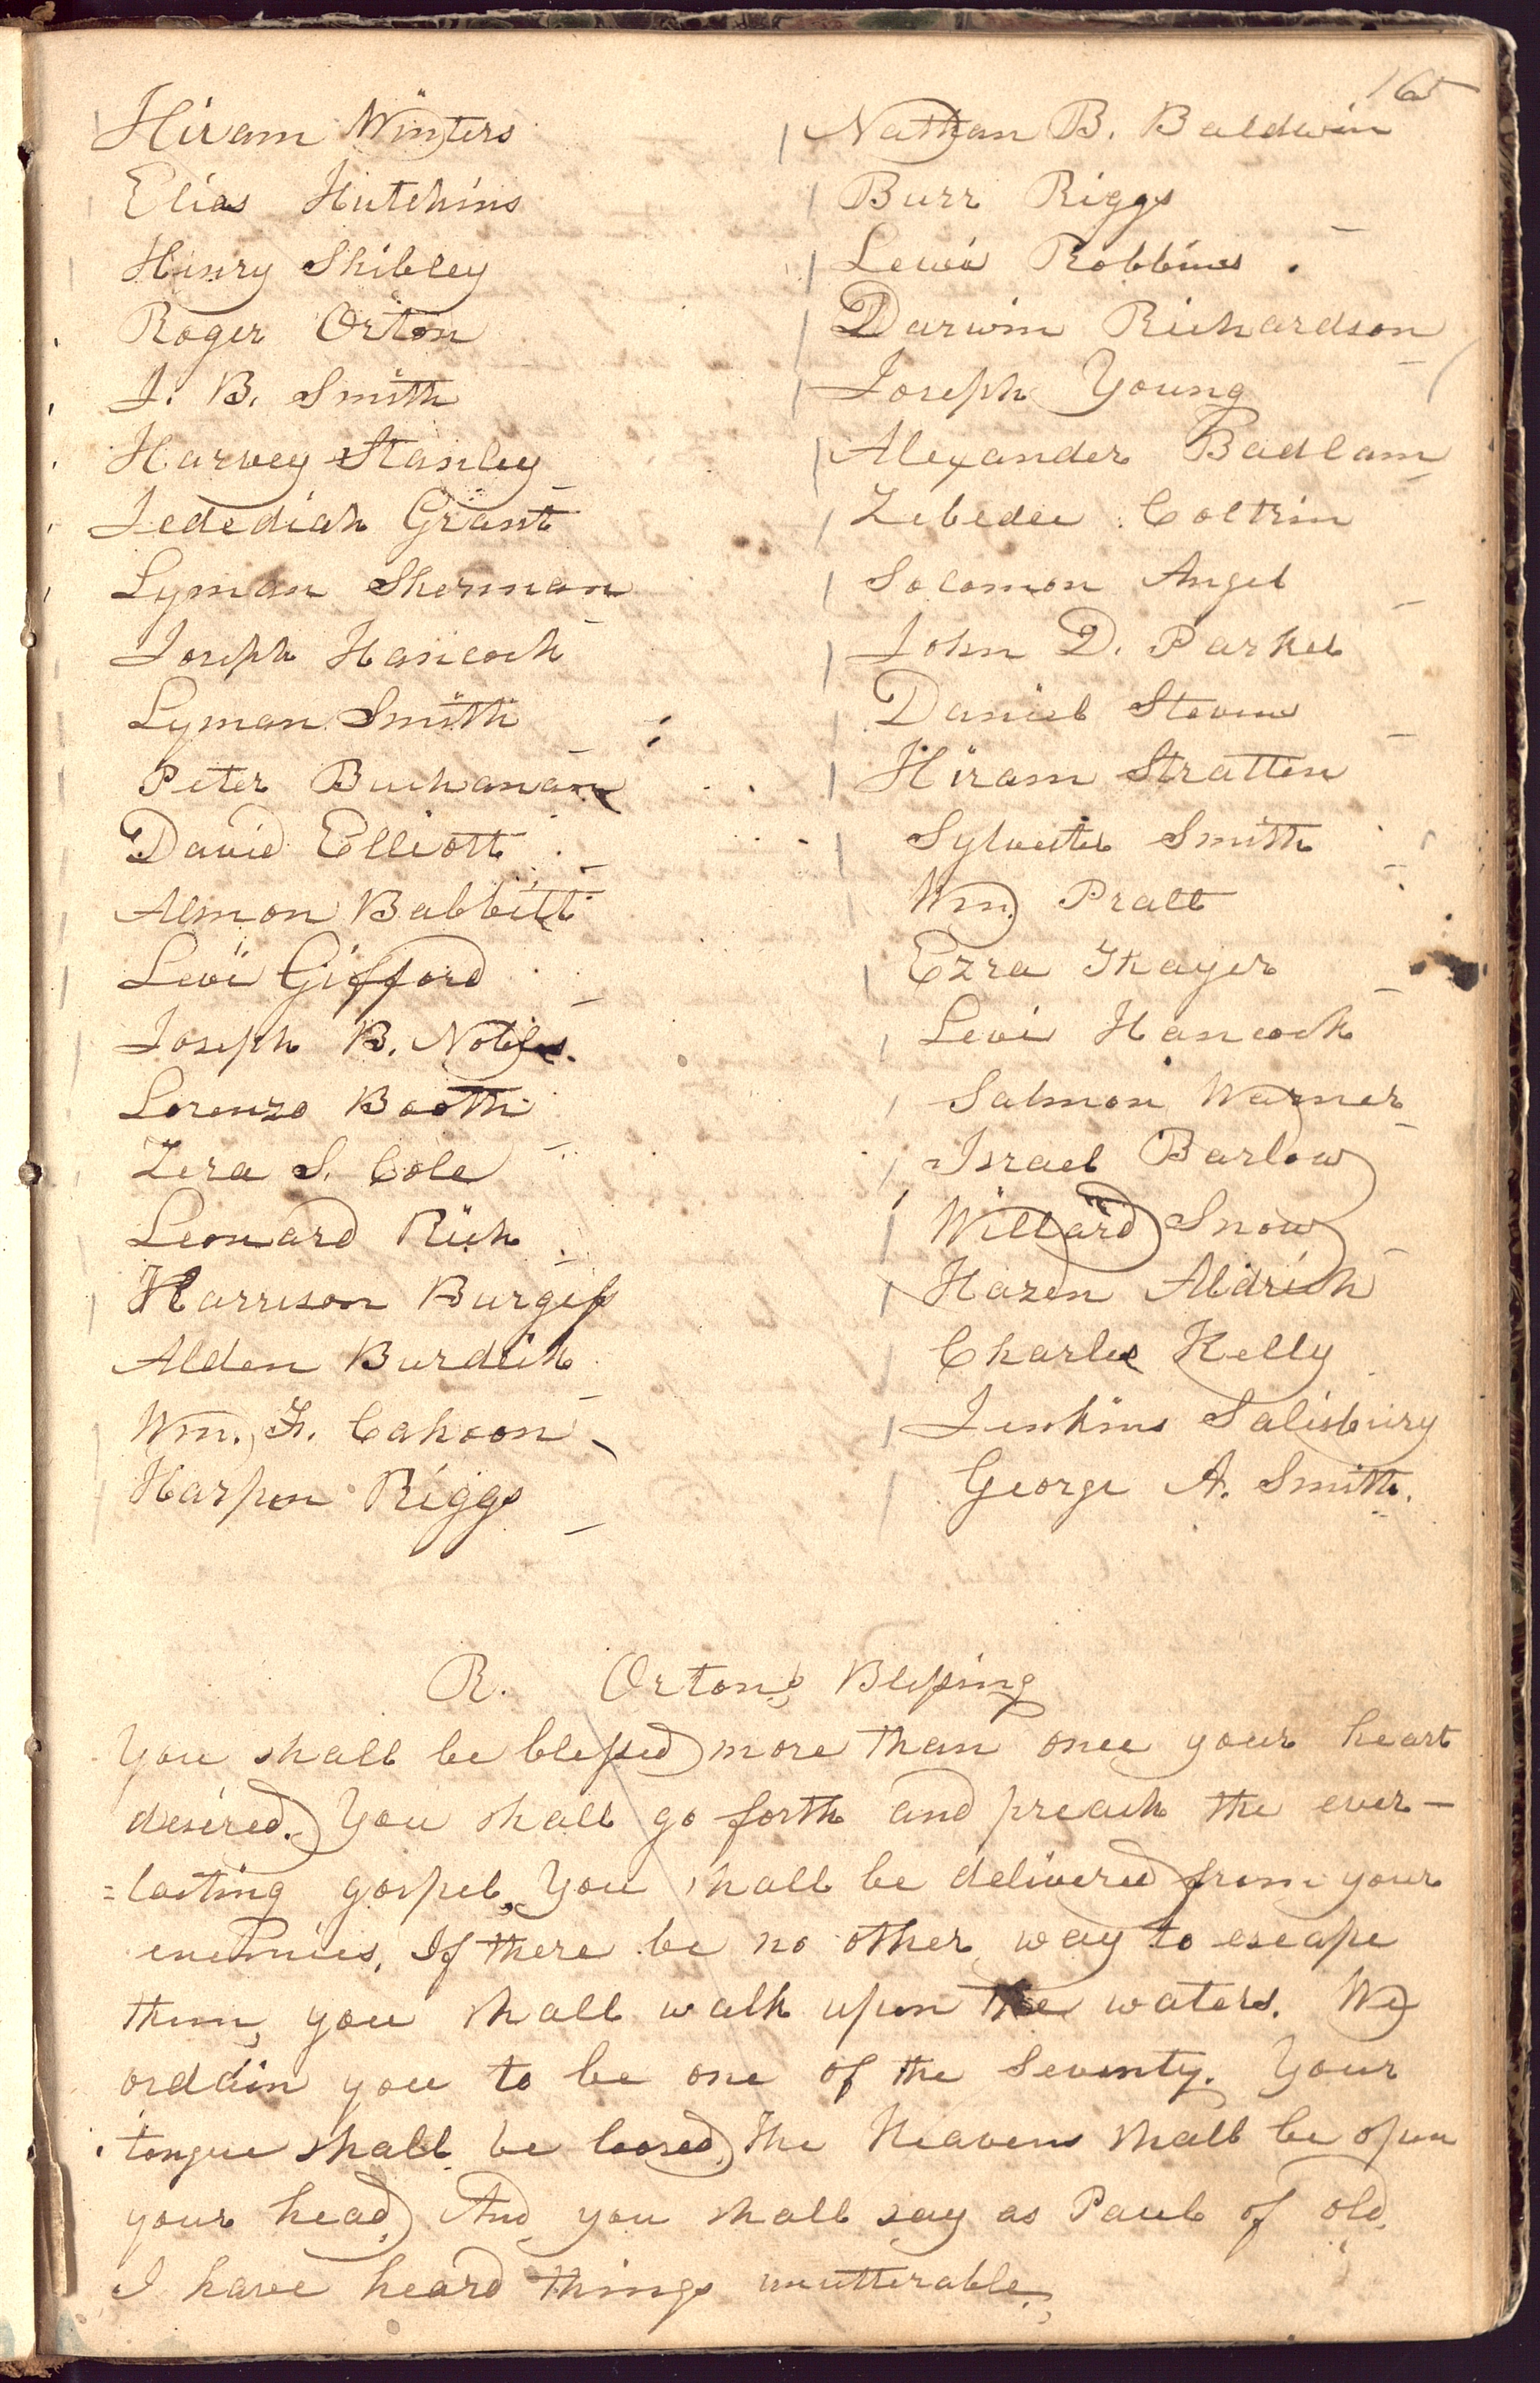 165
Hiram Winters
Elias Hutchins
Henry Shibley
Roger Orton
J. B. Smith
Harvey Stanley
Jedediah Grant
Lyman Sherman
Joseph Hancock
Lyman Smith
Peter Buchanan
David Elliott
Almon Babbitt
Levi Gifford
Joseph B. Nobles.
Lorenzo Booth
Zera S. Cole
Leonard Rich
Harrison Burgess
Alden Burdick
Wm. F. Cahoon
Harpen Riggs
Nathan B. Baldwin
Burr Riggs
Lewis Robbins
Darwin Richardson
Joseph Young
Alexander Badlam
Zebedee Coltrin
Solomon Angel
John D. Parker
Daniel Stevens
Hiram Stratten
Sylvester Smith
Wm. Pratt
Ezra Thayer
Levi Hancock
Salmon Warner
Israel Barlow
Willard Snow
Hazen Aldrich
Charles Kelly
Jenkins Salisbury
George A. Smith.
R. Orton's Blessing
You shall be blessed more than once your heart
desired. You shall go forth and preach the ever-
=lasting gospel, You shall be delivered from your
enemies, If there be no other way to escape
them, you shall walk upon the waters. We
ordain you to be one of the Seventy. Your
tongue shall be loosed, The Heavens shall be open
your head, And you shall say as Paul of old,
I have heard things unutterable,